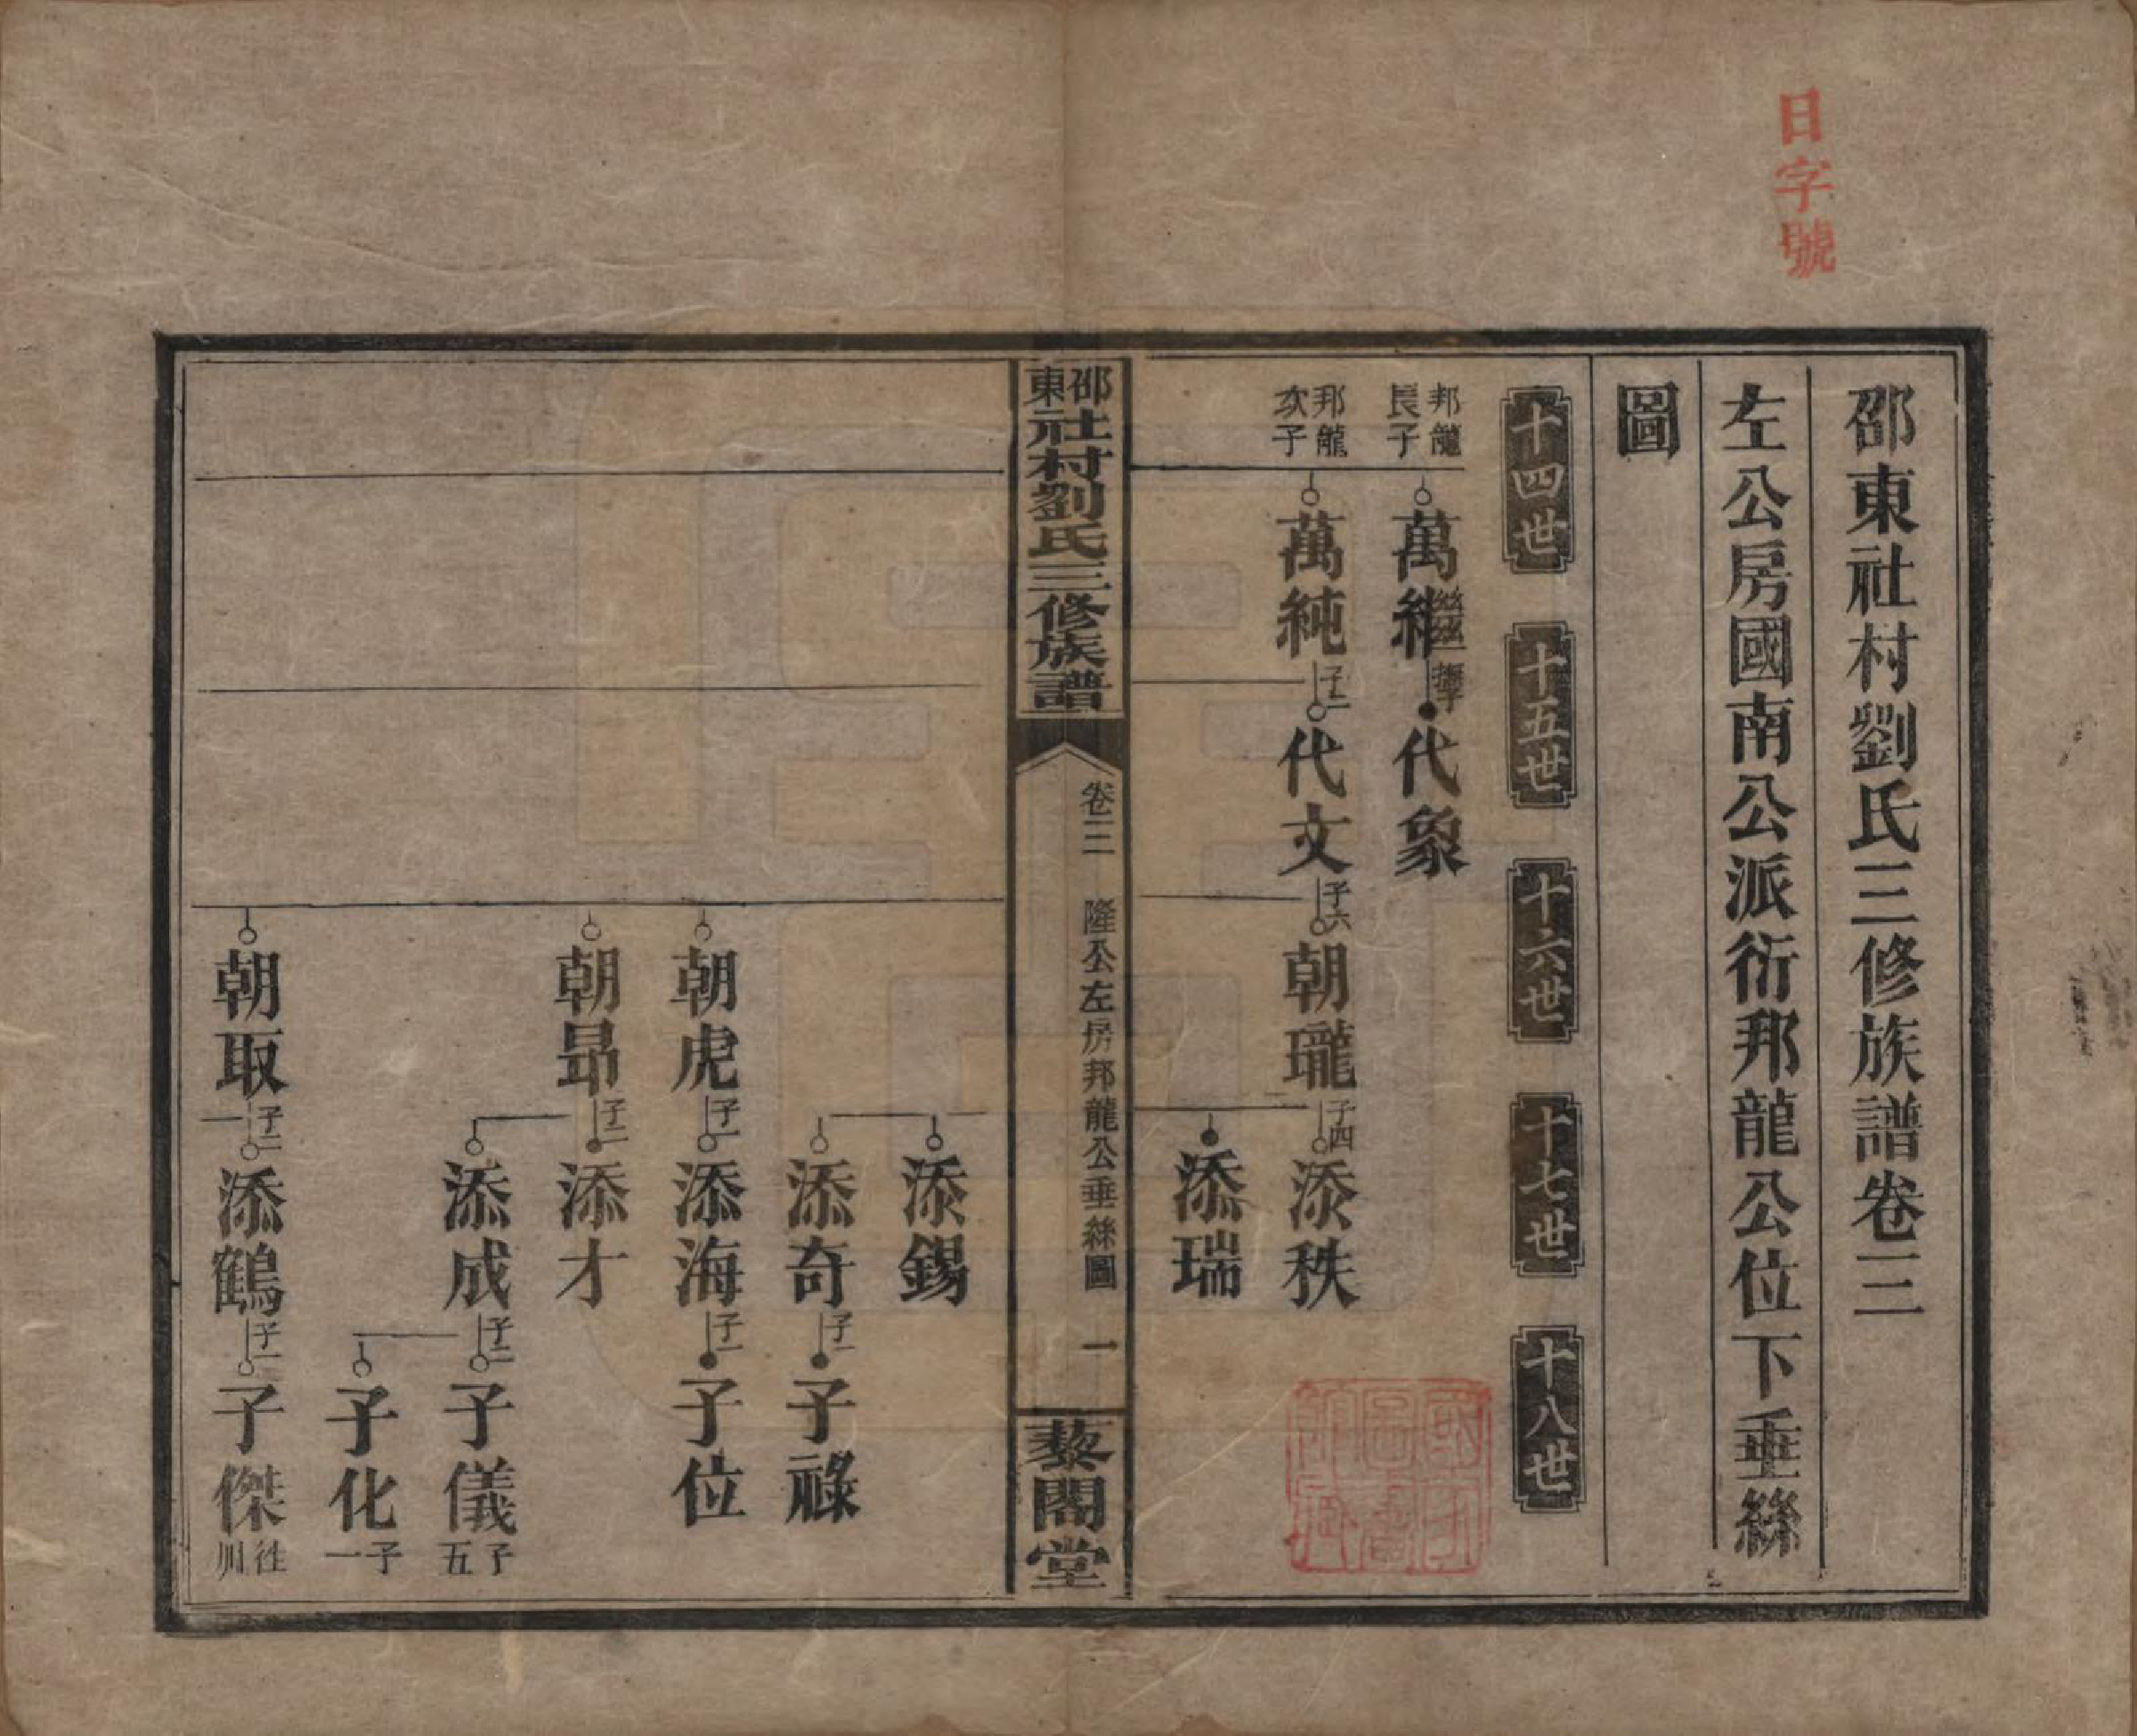 日字號
邵東社村劉氏三修族譜卷三
左公房國南公派衍邦龍公位下垂絲
圖
十四世
十五世
十六世
十七世
十八世
邦龍
長子
萬繼
撫子
代象
邦龍
次子
萬純
子二
代文
子六
朝瓏
子四
添秩
添瑞
邵東社村劉氏三修族譜
卷三
隆公左房邦龍公垂絲圖
一
藜閣堂
添錫
添奇
子一
子祿
朝虎
子一
添海
子一
子位
朝昂
子二
添才
添成
子二
子儀
子五
子化
子一
朝取
子二
添鶴
子二
子傑
徃川